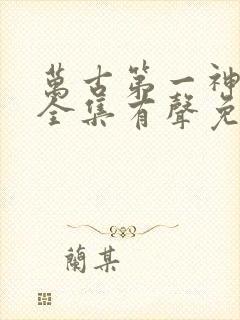 萬古第一神
全集有聲免
蘭某